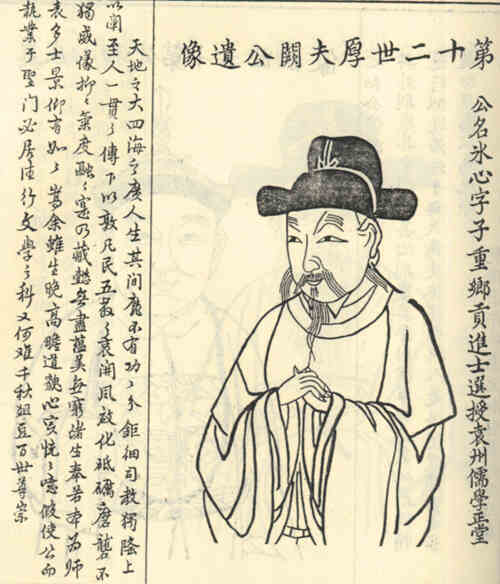 第十二世厚夫闕公遺像
公名氷心字子重鄉貢進士選授袁州儒學正堂
天地之大四海之廣人生其間靡不有功々分鉅細司教獨隆上
以闡至人一貫之傳下以敦凡民五教之衷開風啟化砥礪磨礱不
獨威儀抑々氣度融々寔乃藏無盡蘊美無窮諸生奉若為師
表多士景仰有如嵩余雖生晚高瞻道貌心實恍々噫假使公而
執業于聖門必居德行文學之科又何難千秋俎豆百世尊宗